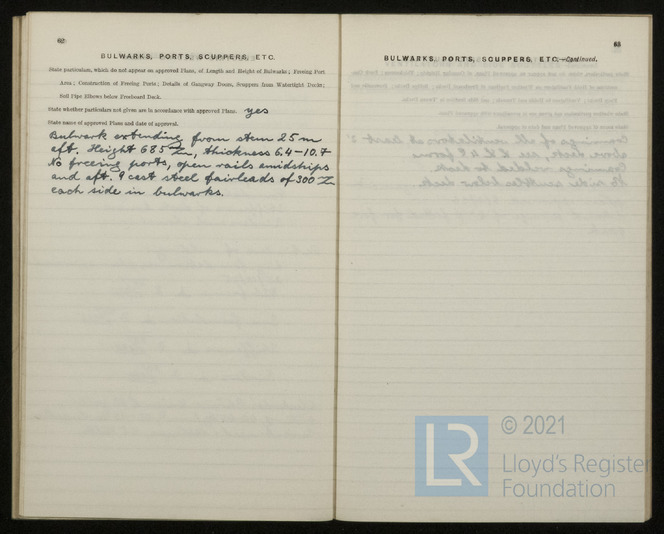 62
BULWARKS, PORTS, SCUPPERS, ETC.
State particulars, which do not appear on approved Plans, of Length and Height of Bulwarks; Freeing Port
Area; Construction of Freeing Ports; Details of Gangway Doors, Scuppers from Watertight Decks;
Soil Pipe Elbows below Freeboard Deck.
State whether particulars not given are in accordance with approved Plans. yes
State name of approved Plans and date of approval.
Bulwark extending from stem 25 m
aft. Height 685 m/m, thickness 6.4–10.7
No freeing ports, open rails amidships
and aft. 9 cast steel fairleads of 300 m/m
each side in bulwarks.
63
BULWARKS, PORTS, SCUPPERS, ETC.—Continued.
LR
© 2021
Lloyd's Register
Foundation